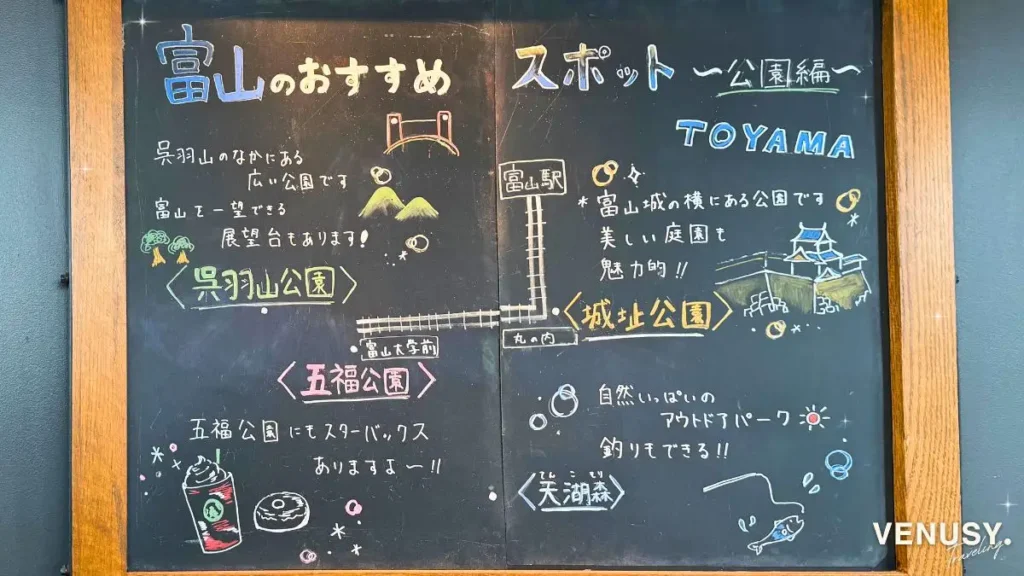 富山のおすすめ スポット 〜公園編〜
TOYAMA
呉羽山のなかにある
広い公園です
富山を一望できる
展望台もあります!
〈呉羽山公園〉
富山駅
*富山城の横にある公園です
美しい庭園も
魅力的!!
〈城址公園〉
丸の内
富山大学前
〈五福公園〉
五福公園にもスターバックス
ありますよ〜!!
自然いっぱいの
アウトドアパーク
釣りもできる!!
〈天湖森〉
VENUSY.
Traveling